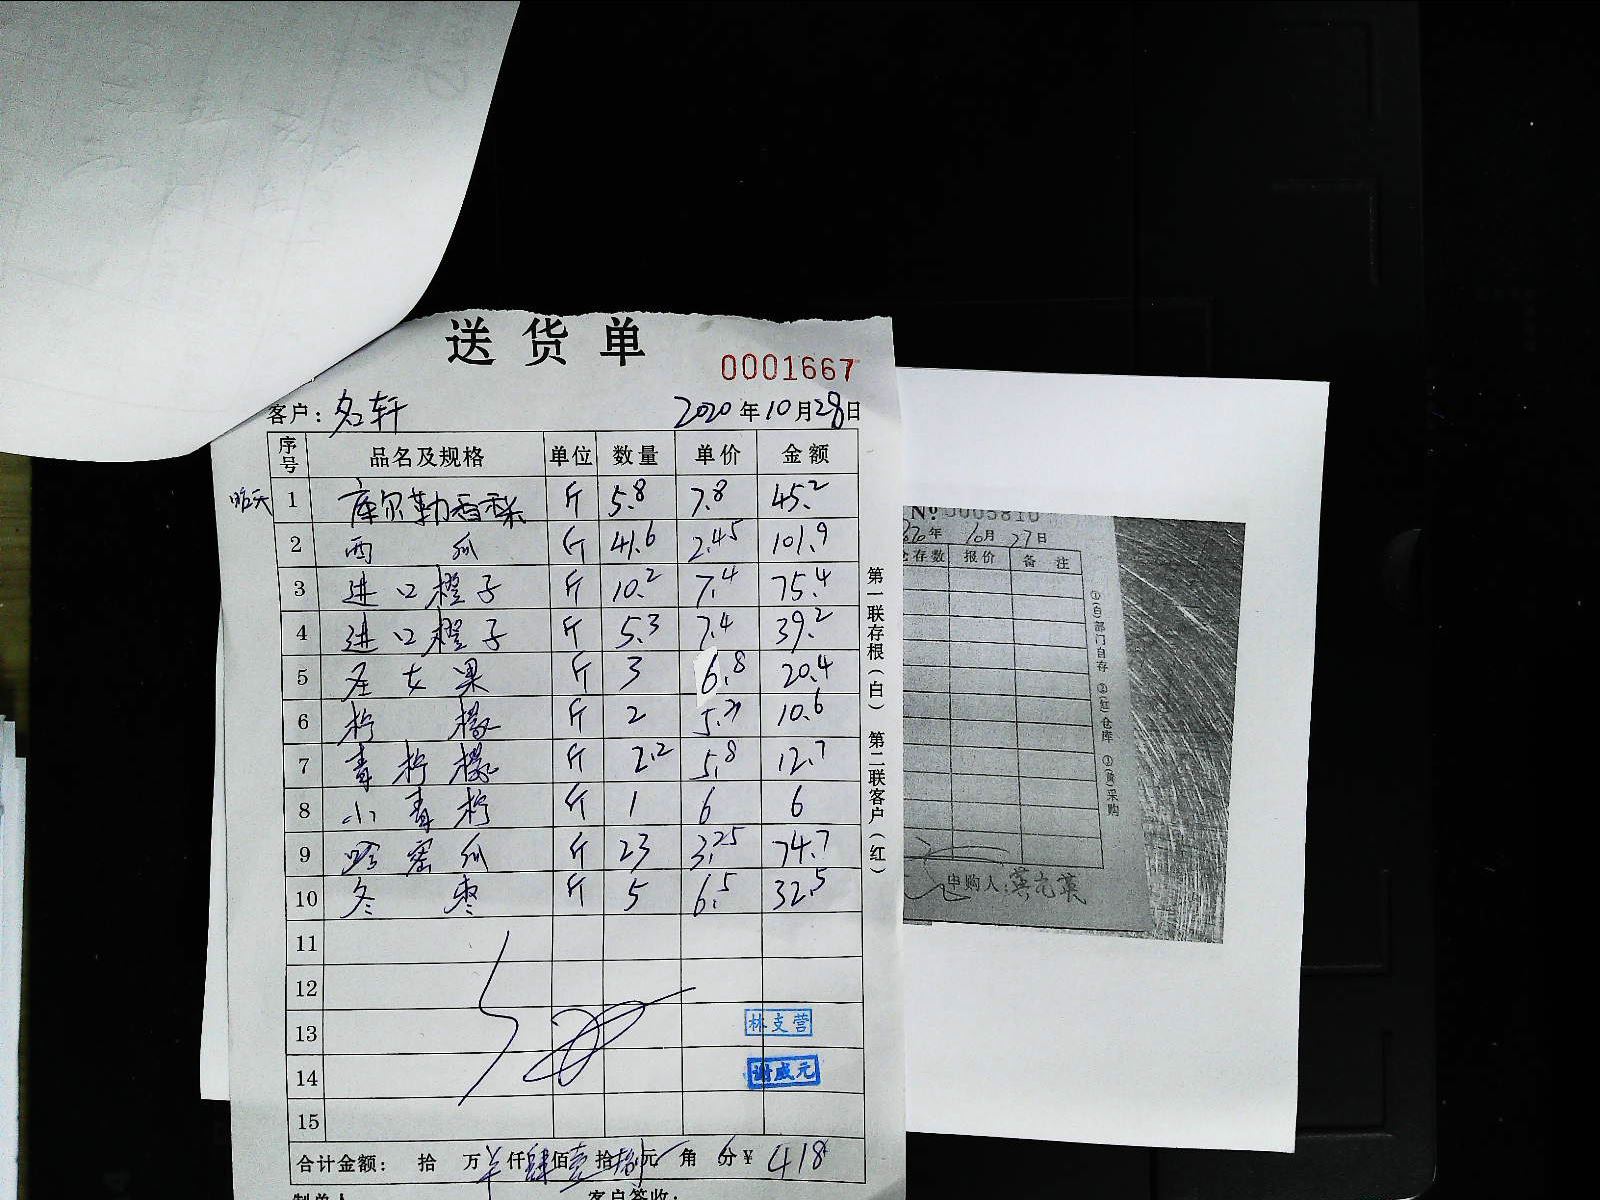 送货单
0001667
客户：名轩 2020年10月28日
序号 品名及规格 单位 数量 单价 金额
昨天 1 库尔勒香梨 斤 5.8 7.8 45.2
2 西瓜 斤 41.6 2.45 101.9
3 进口橙子 斤 10.2 7.4 75.4
4 进口橙子 斤 5.3 7.4 39.2
5 圣女果 斤 3 6.8 20.4
6 柠檬 斤 2 5.3 10.6
7 青柠檬 斤 2.2 5.8 12.7
8 小青柠 斤 1 6 6
9 哈密瓜 斤 23 3.25 74.7
10 冬枣 斤 5 6.5 32.5
11
12
13 林支营
14 谢威元
15
合计金额： 拾 万 仟肆佰壹拾捌元 角 分￥ 418
制单人 客户签收：
第一联存根（白） 第二联客户（红）
No 0005810
年10月27日
仓存数 报价 备注
申购人：
①(白)部门自存 ②(红)仓库 ③(黄)采购